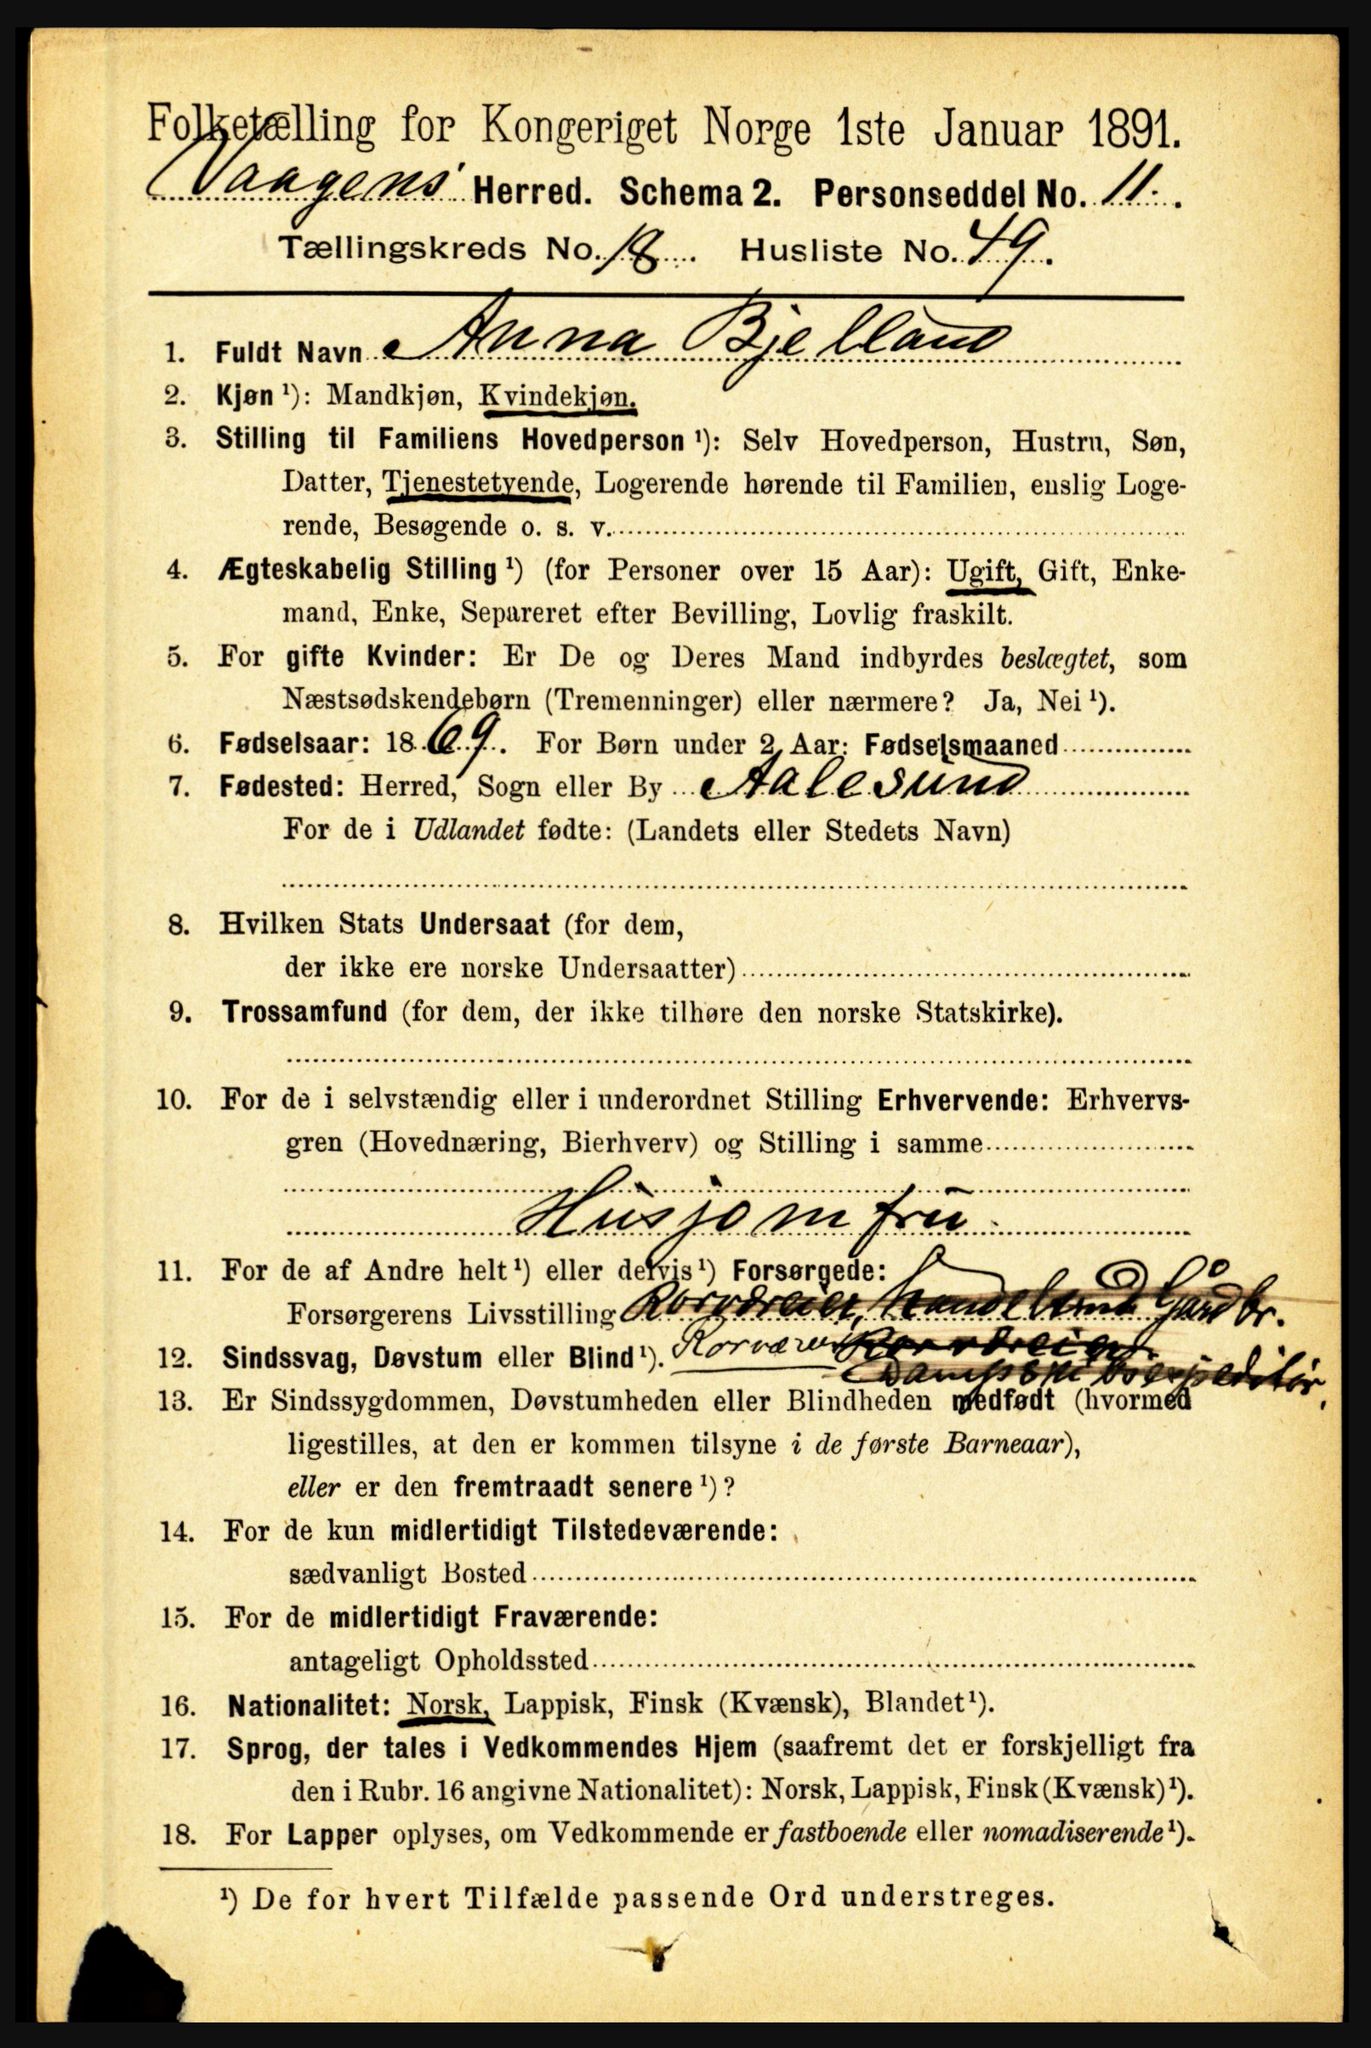 Folketælling for Kongeriget Norge 1ste Januar 1891.
Vaagens Herred. Schema 2. Personseddel No. 11.
Tællingskreds No. 18. Husliste No. 49.
1. Fuldt Navn Anna Bjelland
2. Kjøn ¹): Mandkjøn, Kvindekjøn.
3. Stilling til Familiens Hovedperson ¹): Selv Hovedperson, Hustru, Søn,
Datter, Tjenestetyende, Logerende hørende til Familien, enslig Loge-
rende, Besøgende o. s. v.
4. Ægteskabelig Stilling ¹) (for Personer over 15 Aar): Ugift, Gift, Enke-
mand, Enke, Separeret efter Bevilling, Lovlig fraskilt.
5. For gifte Kvinder: Er De og Deres Mand indbyrdes beslægtet, som
Næstsødskendebørn (Tremenninger) eller nærmere? Ja, Nei ¹).
6. Fødselsaar: 1869. For Børn under 2 Aar: Fødselsmaaned
7. Fødested: Herred, Sogn eller By Aalesund
For de i Udlandet fødte: (Landets eller Stedets Navn)
8. Hvilken Stats Undersaat (for dem,
der ikke ere norske Undersaatter)
9. Trossamfund (for dem, der ikke tilhøre den norske Statskirke).
10. For de i selvstændig eller i underordnet Stilling Erhvervende: Erhvervs-
gren (Hovednæring, Bierhverv) og Stilling i samme
Husjomfru
11. For de af Andre helt ¹) eller delvis ¹) Forsørgede:
Forsørgerens Livsstilling Gårdbr.
12. Sindssvag, Døvstum eller Blind ¹).
Dampskibsexpeditör.
13. Er Sindssygdommen, Døvstumheden eller Blindheden medfødt (hvormed
ligestilles, at den er kommen tilsyne i de første Barneaar),
eller er den fremtraadt senere ¹)?
14. For de kun midlertidigt Tilstedeværende:
sædvanligt Bosted
15. For de midlertidigt Fraværende:
antageligt Opholdssted
16. Nationalitet: Norsk, Lappisk, Finsk (Kvænsk), Blandet ¹).
17. Sprog, der tales i Vedkommendes Hjem (saafremt det er forskjelligt fra
den i Rubr. 16 angivne Nationalitet): Norsk, Lappisk, Finsk (Kvænsk) ¹).
18. For Lapper oplyses, om Vedkommende er fastboende eller nomadiserende ¹).
¹) De for hvert Tilfælde passende Ord understreges.